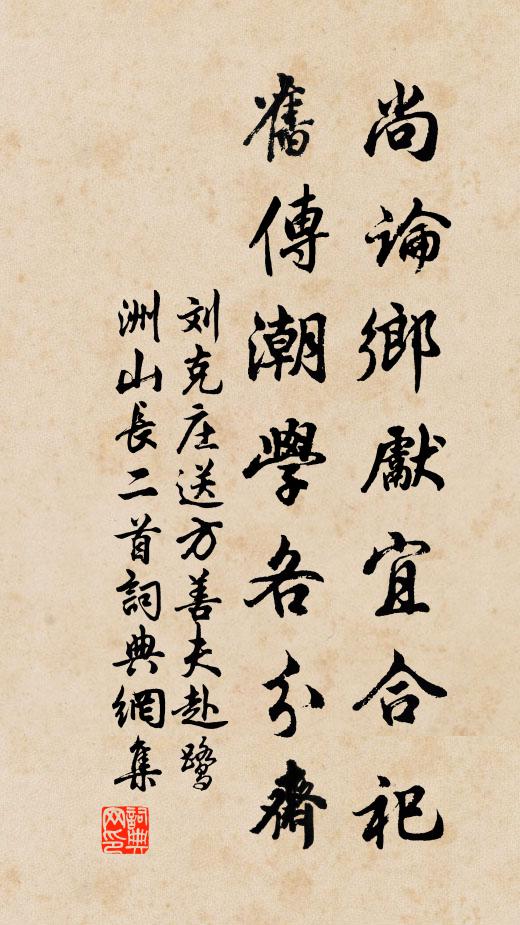 尚論鄉獻宜合祀
舊傳潮學各分齋
刘克庄送方善夫赴鹭
洲山長二首詞典網集
詞典
网印